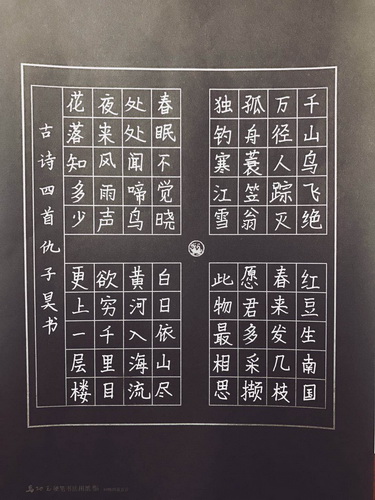 千山鸟飞绝
万径人踪灭
孤舟蓑笠翁
独钓寒江雪
春眠不觉晓
处处闻啼鸟
夜来风雨声
花落知多少
红豆生南国
春来发几枝
愿君多采撷
此物最相思
白日依山尽
黄河入海流
欲穷千里目
更上一层楼
古诗四首仇子昊书